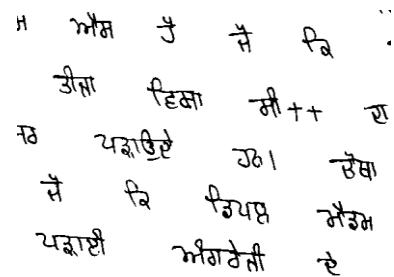 ਐਸ ਹੈ ਜੋ ਕਿ
ਤੀਜਾ ਵਿਸ਼ਾ ਸੀ++ ਦਾ
ਪੜਾਉਂਦੇ ਹਨ। ਚੋਥਾ
ਜੋ ਕਿ ਡਿੰਪਲ ਮੈਡਮ
ਪੜਾਈ ਅੰਗਰੇਜੀ ਦੇ